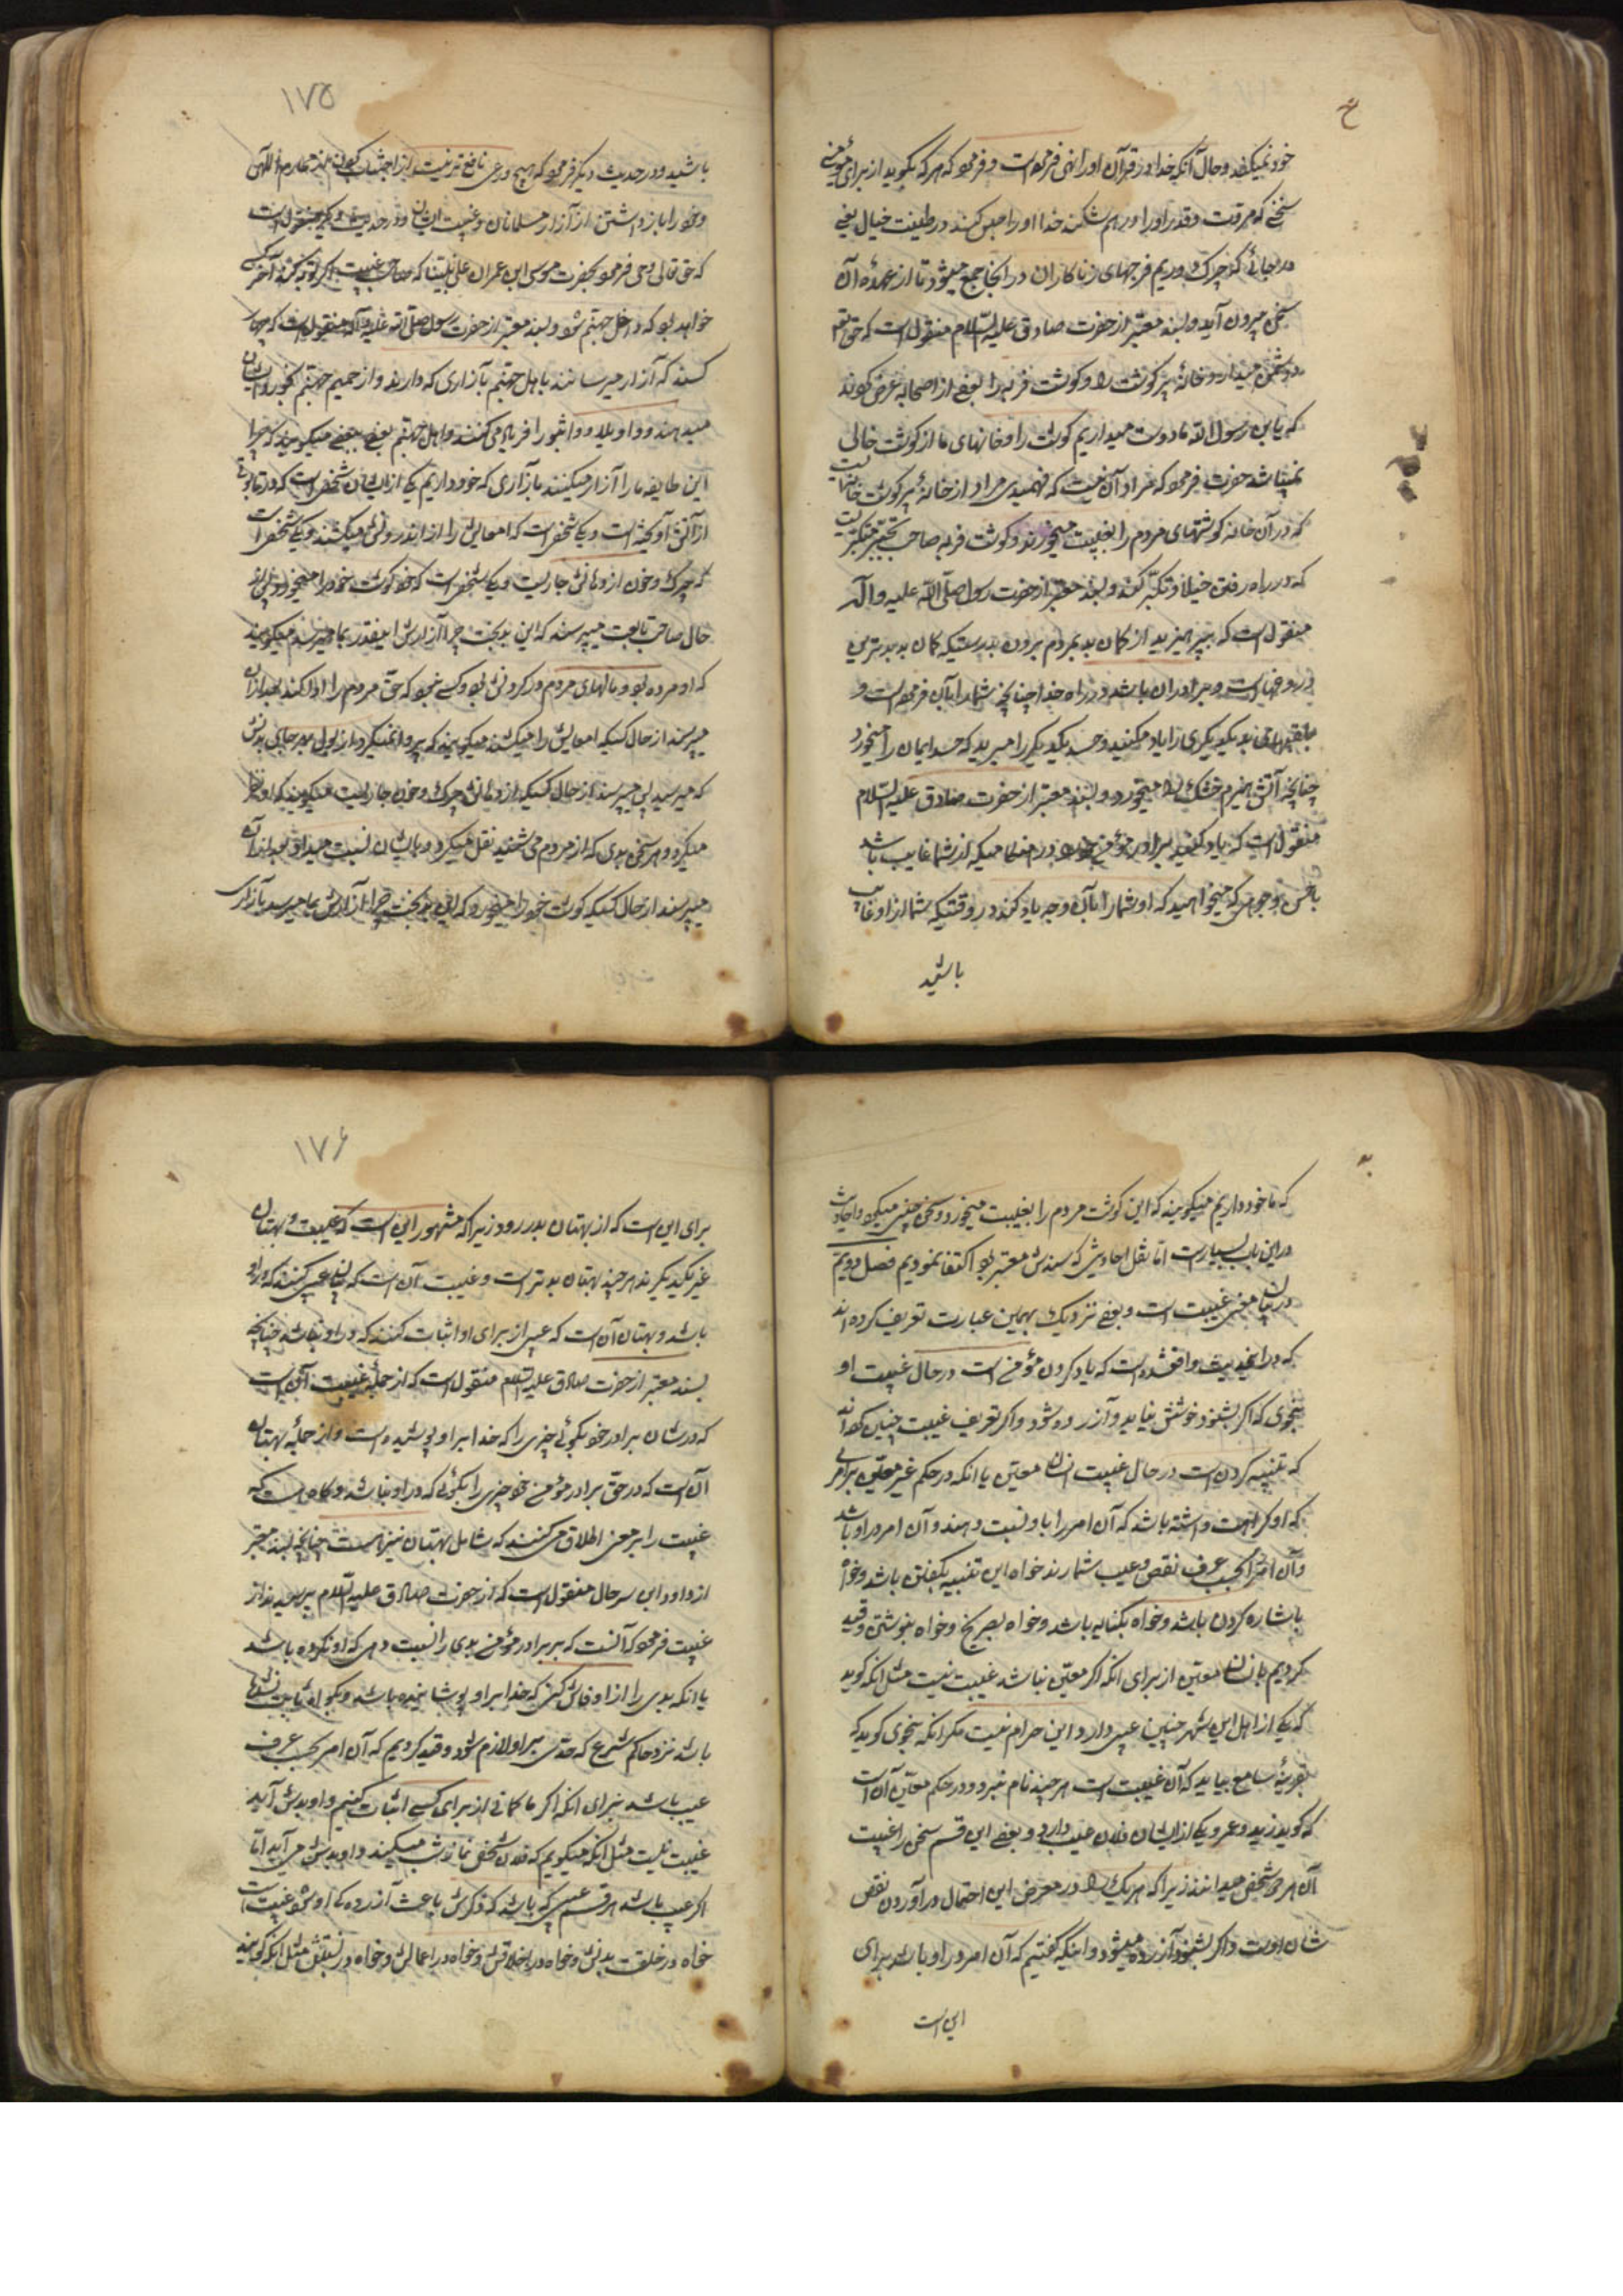 خود نمیکند و حال آنکه خدا در قرآن او را نهی فرموده است و فرمود که هر که بگوید از برای مؤمنی
سخنی که مروت و قدر او را درهم شکند خدا او را حبس کند در طینت خبال یعنی
در جائی که چرک و ریم فرجهای زناکاران در آنجا جمع میشود تا از عهدهٔ آن
سخن بیرون آید و بسند معتبر از حضرت صادق علیه السلام منقول است که حق تعالی
دشمن میدارد خانهٔ پر گوشت را و گوشت فربه را بعضی از اصحاب عرض کردند
که یابن رسول الله ما دوست میداریم گوشت را و خانهای ما از گوشت خالی
نمیباشد حضرت فرمود که مراد آن نیست که فهمیدی مراد از خانهٔ پر گوشت خانهایست
که در آن خانه گوشتهای مردم را بغیبت میخورند و گوشت فربه صاحب تجبر متکبریست
که در راه رفتن خیلا و تکبر کند و بسند معتبر از حضرت رسول صلی الله علیه و آله
منقول است که بپرهیزید از گمان بد بمردم بردن بدرستیکه گمان بد بدترین
دروغهاست و برادران باشید در راه خدا چنانچه شما را بآن فرموده است و
بلقبهای بد یکدیگر را یاد مکنید و حسد یکدیگر را مبرید که حسد ایمان را میخورد
چنانچه آتش هیزم خشک را میخورد و بسند معتبر از حضرت صادق علیه السلام
منقول است که یاد کنید برادر مؤمن خود را در هنگامیکه از شما غایب باشد
باحسن وجوهی که میخواهید که او شما را بآن وجه یاد کند در وقتیکه شما از او غایب
باشید
۱۷۵
باشید و در حدیث دیگر فرمود که هیچ ورعی نافع تر نیست از اجتناب کردن از محارم الهی
و خود را باز داشتن از آزار مسلمانان و غیبت ایشان و در حدیث دیگر منقول است
که حق تعالی وحی فرمود بحضرت موسی ابن عمران علی نبینا که صاحب غیبت اگر توبه کند آخر کسی
خواهد بود که داخل جهنم شود و بسند معتبر از حضرت رسول صلی الله علیه و آله منقول است که چهار
کسند که آزار میرسانند باهل جهنم بآزاری که دارند و از حمیم جهنم بخورد ایشان
میدهند و واویلاه و واثبورا فریاد می کنند و اهل جهنم بعضی ببعضی میگویند که چرا
این طایفه ما را آزار میکنند بآزاری که خود داریم یکی از ایشان شخصی است که در تابوتی
از آتش آویخته است و یکی شخصی است که امعایش را از اندرونش میکشند و یکی شخصی است
که چرک و خون از دهانش جاریست و یکی شخصی است که خود گوشت خود را میخورد پس از
حال صاحب تابوت میپرسند که این بدبخت چرا آزارش اینقدر بما میرسد میگویند
که او مرده بود و مالهای مردم در گردنش بود و کسی نبود که حق مردم را ادا کند بعد از آن
میپرسند از حال کسیکه امعایش را میکشند میگویند که پروا نمیکرد از بول بهر جای بدنش
که میرسید پس میپرسند از حال کسیکه از دهانش چرک و خون جاریست میگویند که او
میکرد و هر سخن بدی که از مردم می شنید نقل میکرد و بایشان نسبت میداد بعد از آن
میپرسند از حال کسیکه گوشت خود را میخورد که این بدبخت چرا آزارش بما میرسد بآزاری
که ما خود داریم میگویند که این گوشت مردم را بغیبت میخورد و سخن چینی میکرد و احادیث
در این باب بسیارست اما بنقل احادیثی که سندش معتبر بود اکتفا نمودیم فصل دویم
در بیان معنی غیبت است و بعضی نزدیک بهمین عبارت تعریف کرده اند
که در این حدیث واقع شده است که یاد کردن مؤمنی است در حال غیبت او
بنحوی که اگر بشنود خوشش نیاید و آزرده شود و اکثر تعریف غیبت چنین کرده اند
که تنبیه کردن است در حال غیبت انسان معین یا آنکه در حکم غیر معین بر امری
که او کراهت داشته باشد که آن امر را باو نسبت دهند و آن امر در او باشد
و آن امر را بحسب عرف نقص و عیب شمارند خواه این تنبیه بگفتن باشد و خواه
باشاره کردن باشد و خواه بکنایه باشد و خواه بصریح و خواه بنوشتن و قید
کردیم بانسان معین از برای آنکه اگر معین نباشد غیبت نیست مثل آنکه گوید
که یکی از اهل این شهر چنین عیبی دارد و این حرام نیست مگر آنکه بنحوی گوید که
بقرینهٔ سامع بیابد که آن غیبت است هر چند نام نبرد و در حکم معین آن است
که گوید زید و عمرو یکی از ایشان فلان عیب دارد و بعضی این قسم سخن را غیبت
آن هر دو شخص میدانند زیرا که هر یک را در معرض این احتمال در آوردن نقص
شان اوست و اگر بشنود آزرده میشود و اینکه گفتیم که آن امر در او باشد برای
این است
۱۷۶
برای این است که از بهتان بدر رود زیرا که مشهور این است که غیبت و بهتان
غیر یکدیگرند هر چند بهتان بدتر است و غیبت آن است که بیان عیبی کنند که در او
باشد و بهتان آن است که عیبی از برای او اثبات کنند که در او نباشد چنانچه
بسند معتبر از حضرت صادق علیه السلام منقول است که از جملهٔ غیبت آن است
که در شان برادر خود بگوئی چیزی را که خدا بر او پوشیده است و از جملهٔ بهتان
آن است که در حق برادر مؤمن خود چیزی را بگوئی که در او نباشد و گاه هست که
غیبت را بر معنی اطلاق می کنند که شامل بهتان نیز هست چنانچه بسند معتبر
از داود ابن سرحان منقول است که از حضرت صادق علیه السلام پرسیدند از
غیبت فرمود که آنست که ببرادر مؤمن بدی را نسبت دهی که او نکرده باشد
یا آنکه بدی را از او فاش کنی که خدا بر او پوشانیده باشد و بگواه ثابت نشده
باشد نزد حاکم شرع که حدی بر او لازم شود و قید کردیم که آن امر بحسب عرف
عیب باشد برای آنکه اگر ما کمالی از برای کسی اثبات کنیم و او بدش آید
غیبت نیست مثل آنکه میگویم که فلان شخص نماز شب میکند و او بدش می آید اما
اگر عیب باشد هر قسم عیبی که باشد که ذکرش باعث آزردگی او شود غیبت است
خواه در خلقت بدنش و خواه در اخلاقش و خواه در اعمالش و خواه در نسبش مثل آنکه گویند